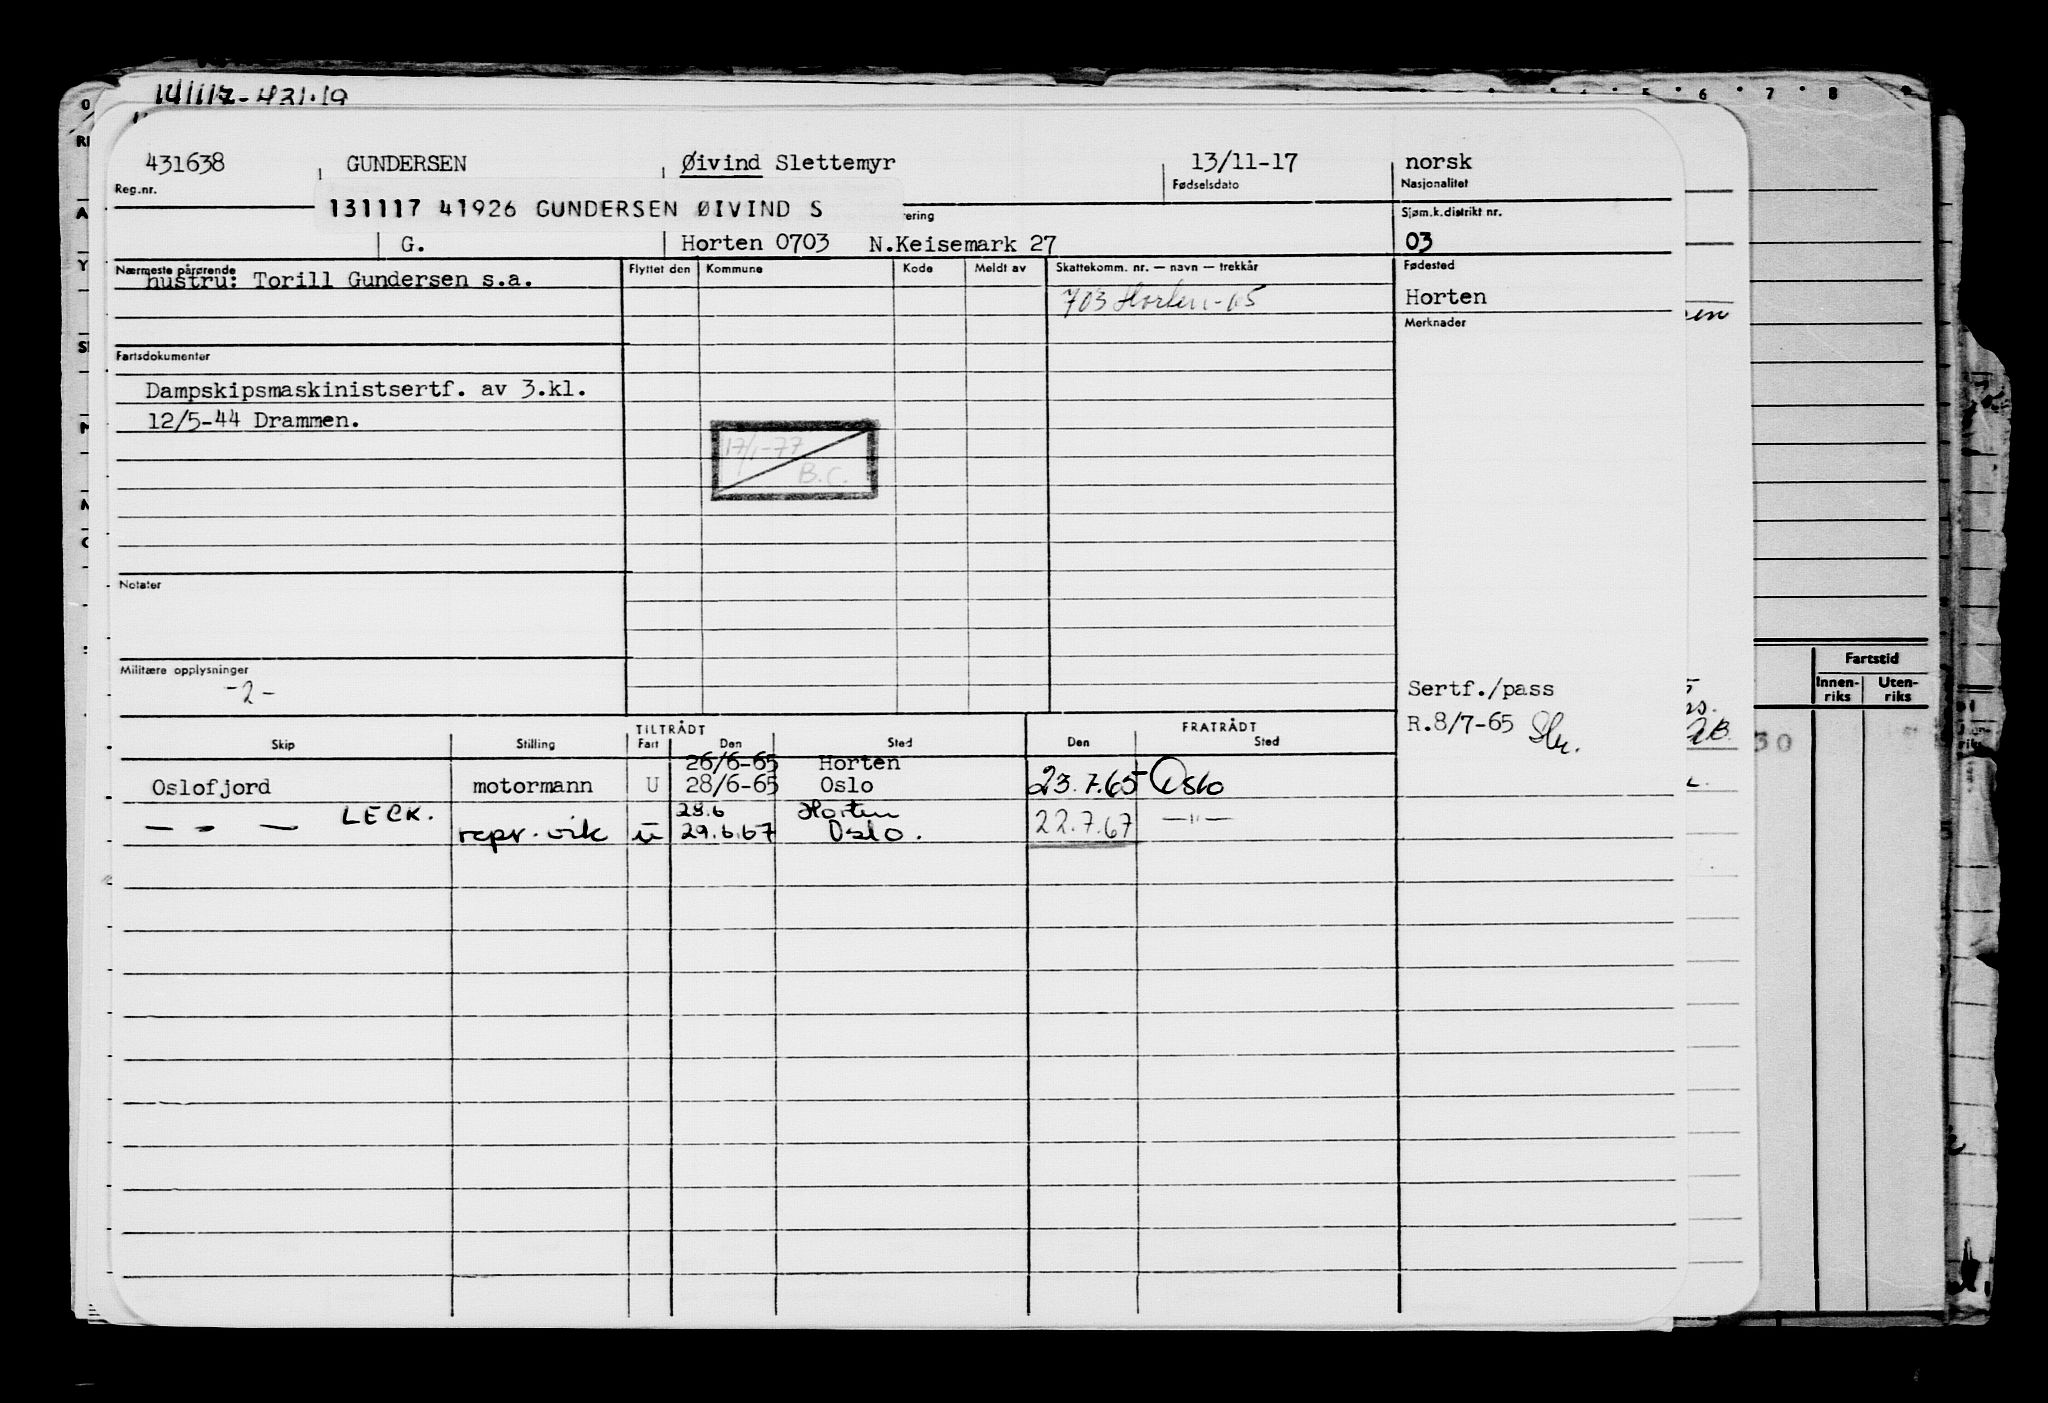 141117-421.19
431638 GUNDERSEN Øivind Slettemyr 13/11-17 norsk
Reg.nr. Fødselsdato Nasjonalitet
131117 41926 GUNDERSEN ØIVIND S ering Sjøm.k.distrikt nr.
G. Horten 0703 N.Keisemark 27 03
Nærmeste pårørende Flyttet den Kommune Kode Meldt av Skattekomm. nr. — navn — trekkår Fødested
hustru: Torill Gundersen s.a.
703 Horten-65 Horten
Merknader
Fartsdokumenter
Dampskipsmaskinistsertf. av 3.kl.
12/5-44 Drammen.
17/1-77
B.C.
Notater
Militære opplysninger
-2-
Sertf./pass
R.8/7-65
TILTRÅDT FRATRÅDT
Skip Stilling Fart Den Sted Den Sted
26/6-65 Horten
Oslofjord motormann U 28/6-65 Oslo 23.7.65 Oslo
LECK. 28.6 Horten
— - — repr.vik u 29.6.67 Oslo. 22.7.67 —"—
6 7 8
Fartstid
Innen- Uten-
riks riks
30